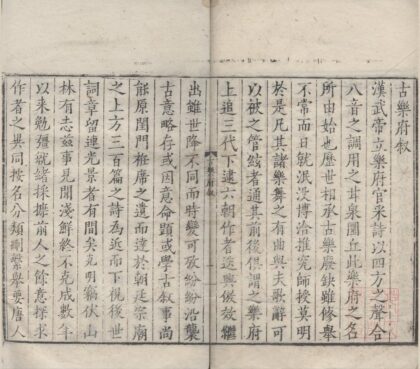 古樂府叙
漢武帝立樂府官采詩以四方之聲合
八音之調用之甘泉圜丘此樂府之名
所由始也歷世相承古樂廢缺雖修舉
不常而日就泯沒博洽推究師授莫明
於是凡其諸樂舞之有曲與夫歌辭可
以被之管絃者通其前後俱謂之樂府
上追三代下逮六朝作者迭興倣效繼
樂府叙
出雖世降不同而時變可攷紛紛沿襲
古意略存或因意命題或學古叙事尚
能原閨門袵席之遺而達於朝廷宗廟
之上方三百篇之詩為近而下視後世
詞章留連光景者有間矣克明竊伏山
林有志茲事見聞淺鮮終不克成數年
以來勉彊就緒採摭前人之餘意探求
作者之異同按名分類刪繁舉要唐人